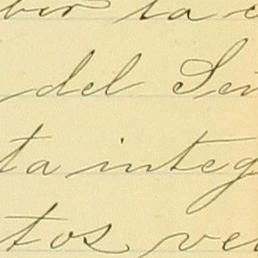 ber la c
del Señ
ta integ
tos ve